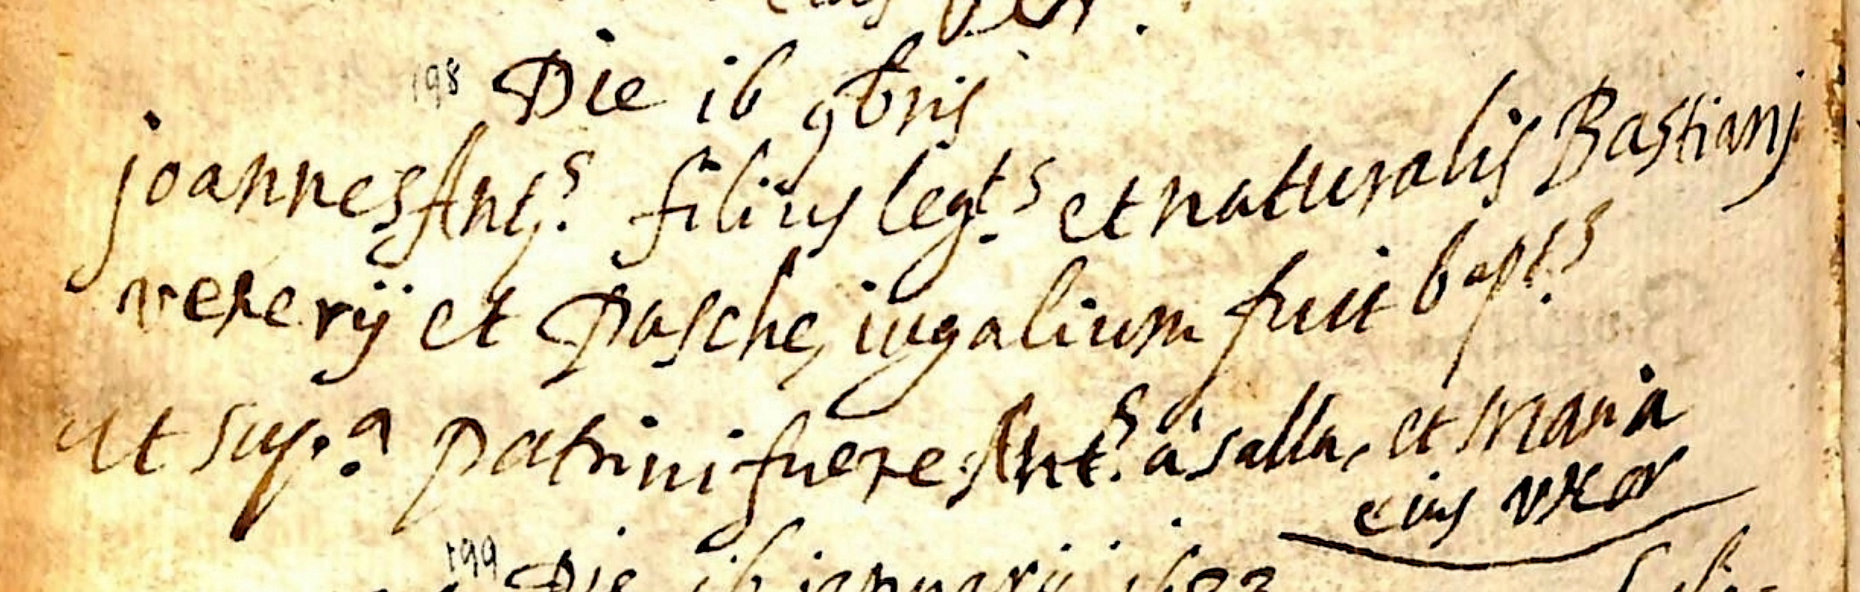 eius vxor.
198 Die ib 9bris
joannes Antˢ. filius legtˢ. et naturalis Bastianj
vererij et Pasche, iugalium fuit baptˢ.
ut sup.ᵃ patrini fuere Antˢ. à salla, et Maria
eius vxor
199 Die ib ianuarij 1633